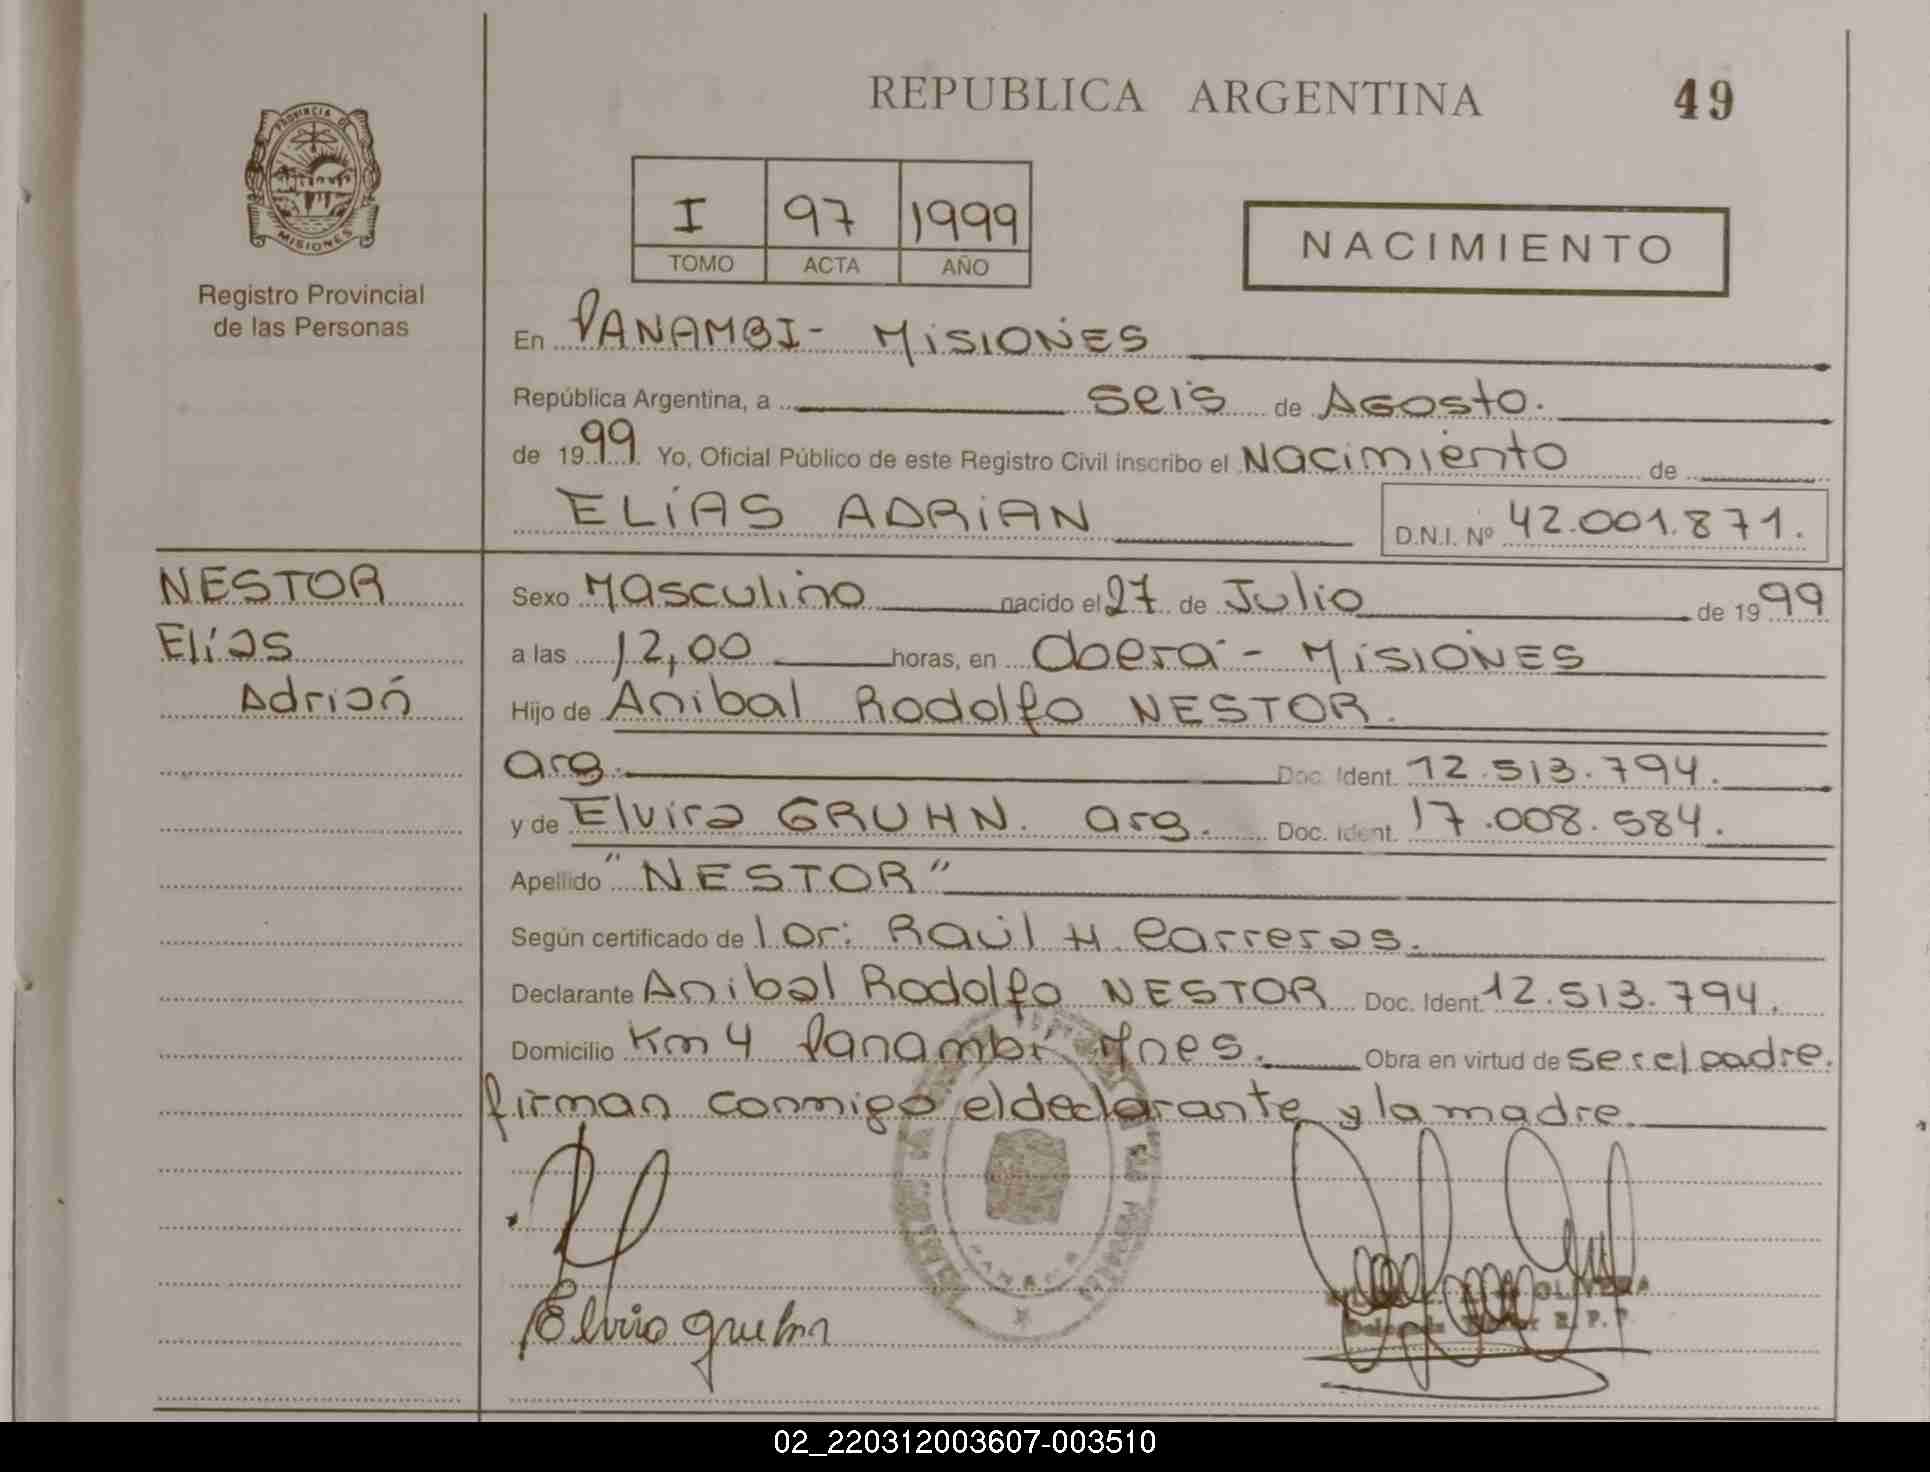 REPUBLICA ARGENTINA 49
PROVINCIA DE
MISIONES
Registro Provincial
de las Personas
I 97 1999
TOMO ACTA AÑO
NACIMIENTO
En PANAMBI- MISIONES
República Argentina, a seis de Agosto.
de 1999. Yo, Oficial Público de este Registro Civil inscribo el Nacimiento de
ELIAS ADRIAN D.N.I. Nº 42.001.871.
NESTOR
Elías
Adrián
Sexo Masculino nacido el 27 de Julio de 1999
a las 12,00 horas, en Oberá - MISIONES
Hijo de Anibal Rodolfo NESTOR.
arg. Doc. Ident. 12.513.794.
y de Elvira GRUHN. arg. Doc. Ident. 17.008.584.
Apellido "NESTOR"
Según certificado de Raúl H. Carreras.
Declarante Anibal Rodolfo NESTOR Doc. Ident. 12.513.794.
Domicilio Km 4 Panambí Mnes. Obra en virtud de ser el padre.
firman conmigo el declarante y la madre.
Elvira gruhn
OLIVERA
R. P. P.
02_220312003607-003510